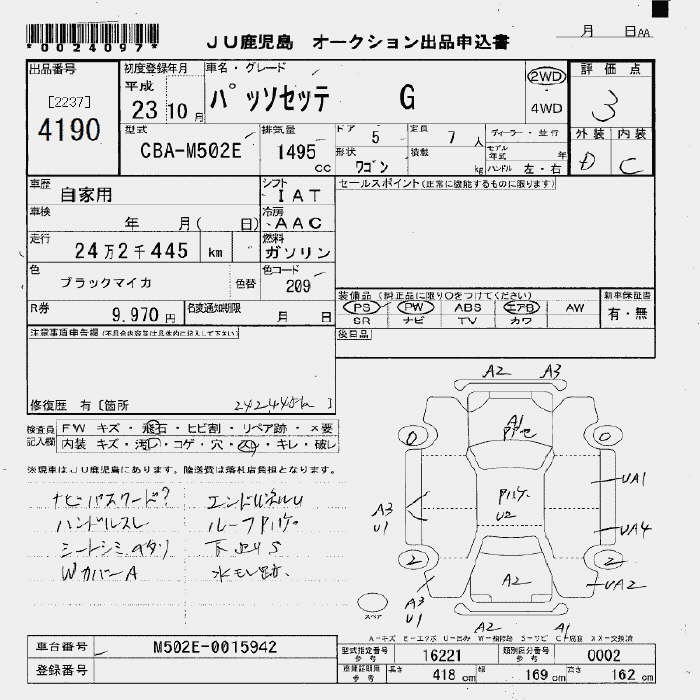 *0024097*
JU鹿児島 オークション出品申込書
月 日AA
出品番号
[2237]
4190
初度登録年月
平成
23 10月
車名・グレード
パッソセッテ G
2WD
4WD
評価点
3
外装 内装
D C
型式
CBA-M502E
排気量
1495 CC
ドア 5
定員 7 人
形状 ワゴン
積載 kg
ディーラー・並行
モデル年式 年
ハンドル 左・右
車歴 自家用
シフト IAT
車検 年 月( 日)
冷房 AAC
走行 24万2千445 km
燃料 ガソリン
色 ブラックマイカ 色替
色コード 209
R券 9.970円
名変通知期限 月 日
セールスポイント(正常に機能するものに限ります)
装備品(純正品に限り○をつけてください)
PS PW ABS エアB AW
SR ナビ TV カワ
新車保証書
有・無
後日品
注意事項申告欄(不具合内容等は具体的に記入して下さい)
修復歴 有〔箇所 〕
242445km
検査員記入欄
FW キズ・飛石・ヒビ割・リペア跡・×要
内装 キズ・汚レ・コゲ・穴・スレ・キレ・破レ
※現車はJU鹿児島にあります。陸送費は落札店負担となります。
ナビパスワード?
ハンドルスレ
シートシミ ヘタリ
WカバーA
エンドパネルU
ルーフPハゲ
下回りS
水モレ跡
A2 A3
A1
0 0
Pハゲ
U2
A3
U1
UA1
UA4
2 2
A2
UA2
A3
U1
スペア
A2 A1
A-キズ E-エクボ U-凹み W-補修跡 S-サビ C-腐蝕 XX-交換済
車台番号 M502E-0015942
登録番号
型式指定番号 参考 16221
類別区分番号 参考 0002
車検証明票 参考 長さ 418 cm 幅 169 cm 高さ 162 cm